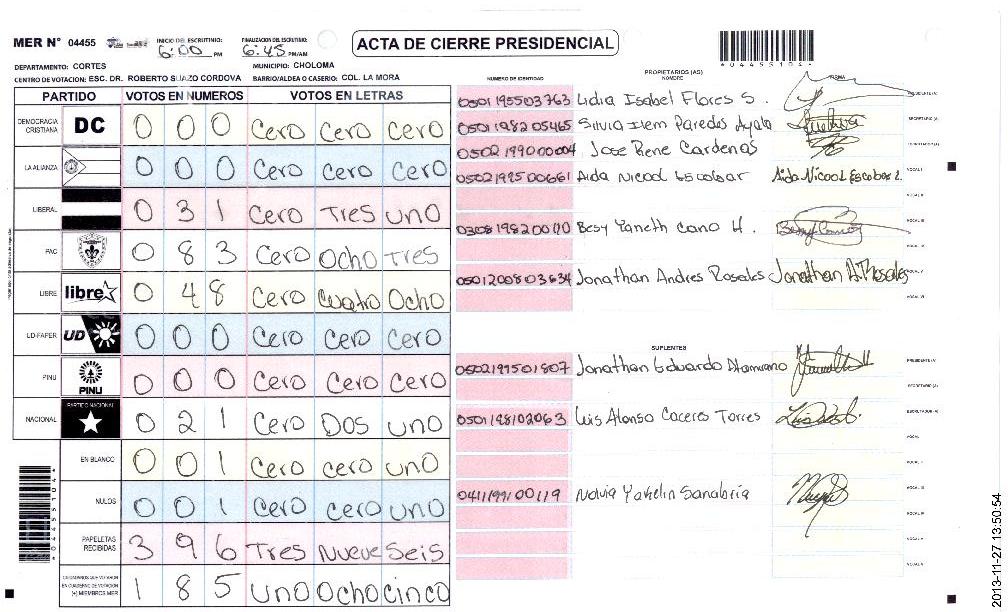 MER N° 04455
INICIO DEL ESCRUTINIO: 6:00 PM
FINALIZACION DEL ESCRUTINIO: 6:45 PM/AM
ACTA DE CIERRE PRESIDENCIAL
04455104
DEPARTAMENTO: CORTES
MUNICIPIO: CHOLOMA
CENTRO DE VOTACION: ESC. DR. ROBERTO SUAZO CORDOVA
BARRIO/ALDEA O CASERIO: COL. LA MORA
PARTIDO VOTOS EN NUMEROS VOTOS EN LETRAS
DEMOCRACIA CRISTIANA DC 0 0 0 Cero Cero Cero
LA ALIANZA 0 0 0 Cero Cero Cero
LIBERAL 0 3 1 Cero Tres Uno
PAC 0 8 3 Cero Ocho Tres
LIBRE libre 0 4 8 Cero Cuatro Ocho
UD-FAPER UD 0 0 0 Cero Cero Cero
PINU PINU 0 0 0 Cero Cero Cero
NACIONAL PARTIDO NACIONAL 0 2 1 Cero Dos Uno
EN BLANCO 0 0 1 Cero cero uno
NULOS 0 0 1 Cero cero uno
PAPELETAS RECIBIDAS 3 9 6 Tres Nueve Seis
CIUDADANOS QUE VOTARON EN CUADERNO DE VOTACION (+) MIEMBROS MER 1 8 5 Uno Ocho cinco
NUMERO DE IDENTIDAD
PROPIETARIOS (AS)
NOMBRE
FIRMA
0501195503763 Lidia Isabel Flores S. PRESIDENTE (A)
0501198205465 Silvia Ilem Paredes Ayala SECRETARIO (A)
0502199000004 Jose Rene Cardenas ESCRUTADOR (A)
0502199500661 Aida Nicool Escobar Aida Nicool Escobar L. VOCAL I
VOCAL II
0308198200110 Besy Yaneth Cano H. VOCAL III
VOCAL IV
0501200803634 Jonathan Andres Rosales Jonathan A. Rosales VOCAL V
VOCAL VI
SUPLENTES
0502199501807 Jonathan Eduardo Altamirano PRESIDENTE (A)
SECRETARIO (A)
0501198102063 Luis Alonso Caceres Torres ESCRUTADOR (A)
VOCAL I
VOCAL II
0411199100119 Nolvia Yakelin Sanabria VOCAL III
VOCAL IV
VOCAL V
04455104
2013-11-27 13:50:54